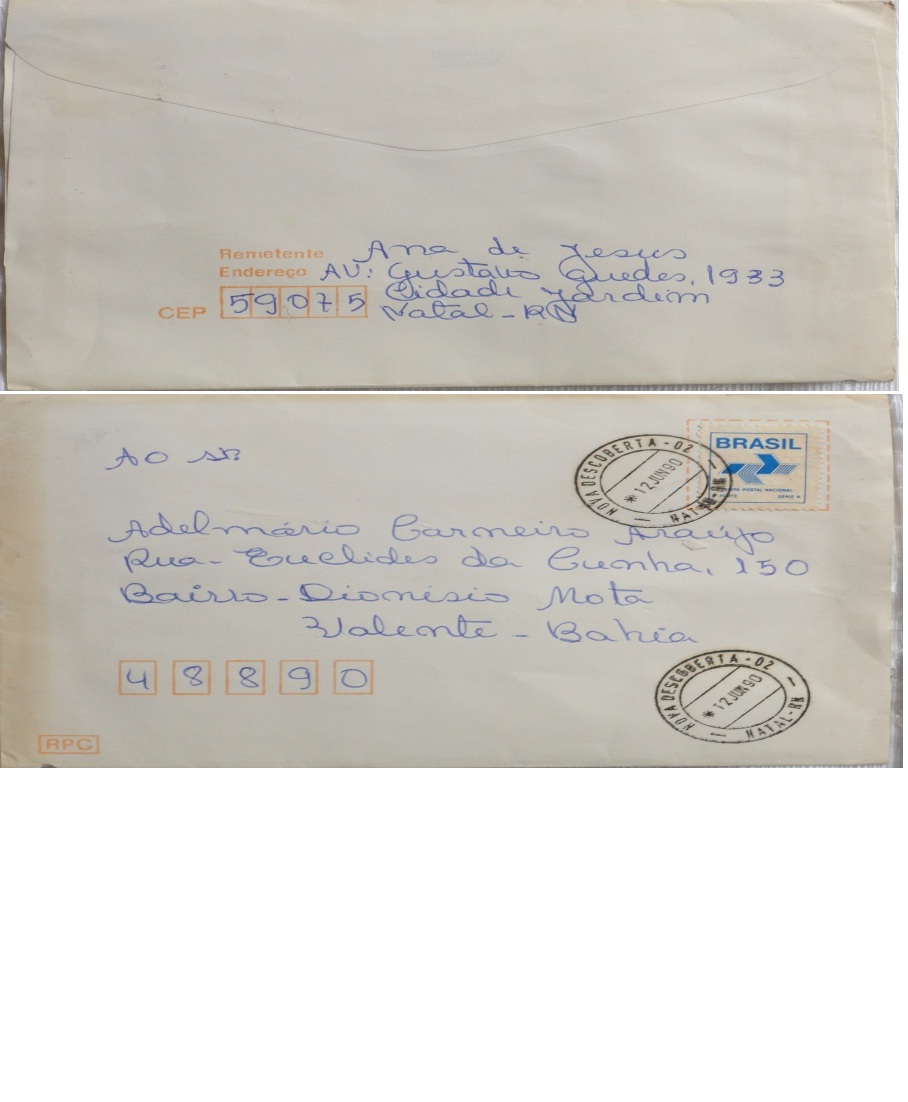 Remetente Ana de Jesus
Endereço AV: Gustavo Guedes, 1933
Cidade Jardim
CEP 59075 Natal-RN
AO SR
BRASIL
TARIFA POSTAL NACIONAL
SÉRIE A
NOVA DESCOBERTA-02
*12JUN90
NATAL-RN
Adelmário Carneiro Araújo
Rua-Euclides da Cunha, 150
Bairro-Dionísio Mota
Valente-Bahia
48890
NOVA DESCOBERTA-02
*12JUN90
NATAL-RN
RPC